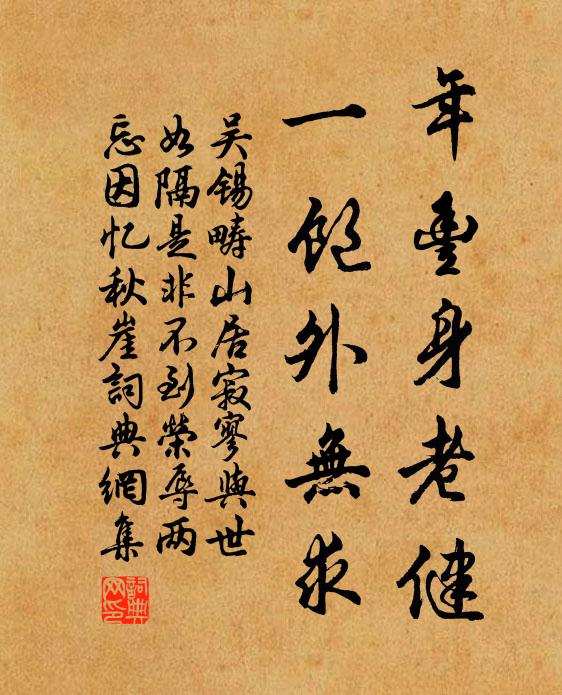 年豐身老健
一飽外無求
吴锡畴山居寂寥與世
如隔是非不到榮辱两
忘因忆秋崖詞典網集
詞典网印